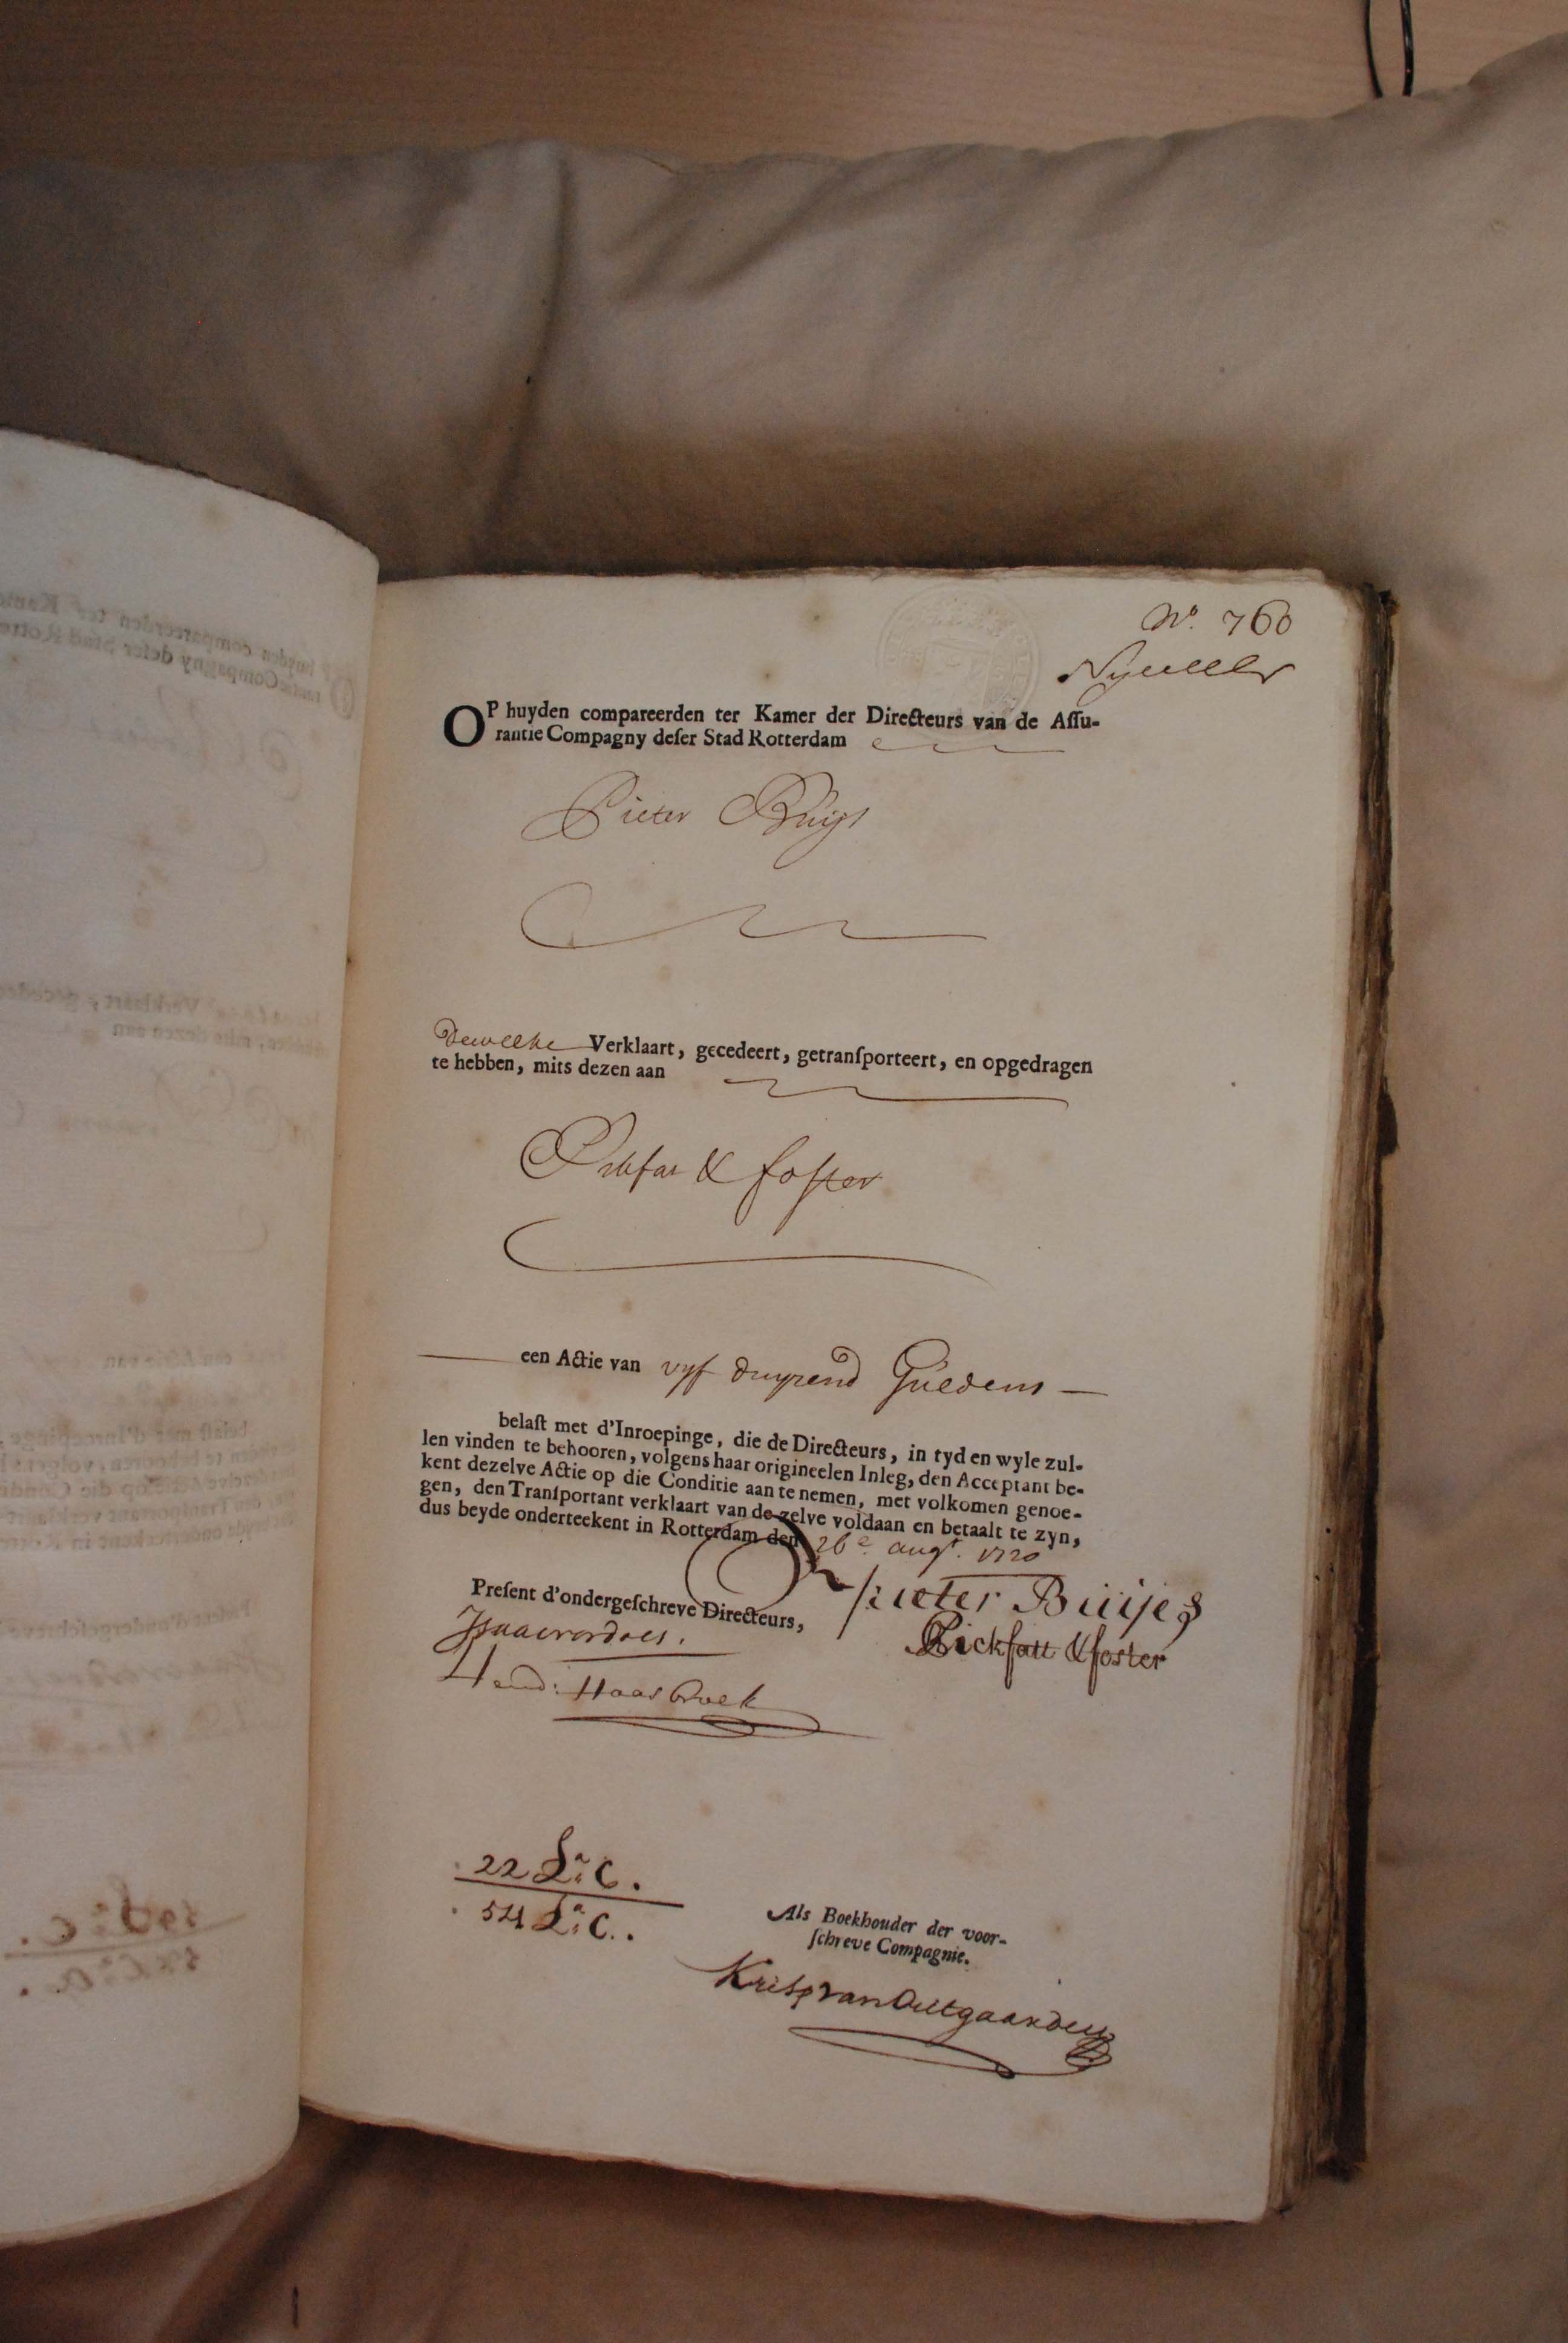 No. 760
OP huyden compareerden ter Kamer der Directeurs van de Aſſu-
rantie Compagny deſer Stad Rotterdam
Pieter Buijs
dewelke Verklaart, gecedeert, getranſporteert, en opgedragen
te hebben, mits dezen aan
& foster
een Actie van vyf duyzend Guldens
belaſt met d'Inroepinge, die de Directeurs, in tyd en wyle zul-
len vinden te behooren, volgens haar origineelen Inleg, den Acceptant be-
kent dezelve Actie op die Conditie aan te nemen, met volkomen genoe-
gen, den Tranſportant verklaart van de zelve voldaan en betaalt te zyn,
dus beyde onderteekent in Rotterdam den 26e augt. 1720
Pieter Buijs
Preſent d'ondergeſchreve Directeurs,
Pickfatt & foster
Hend: Haasbroek
22 La: C.
54 La: C.
Als Boekhouder der voor-
ſchreve Compagnie.